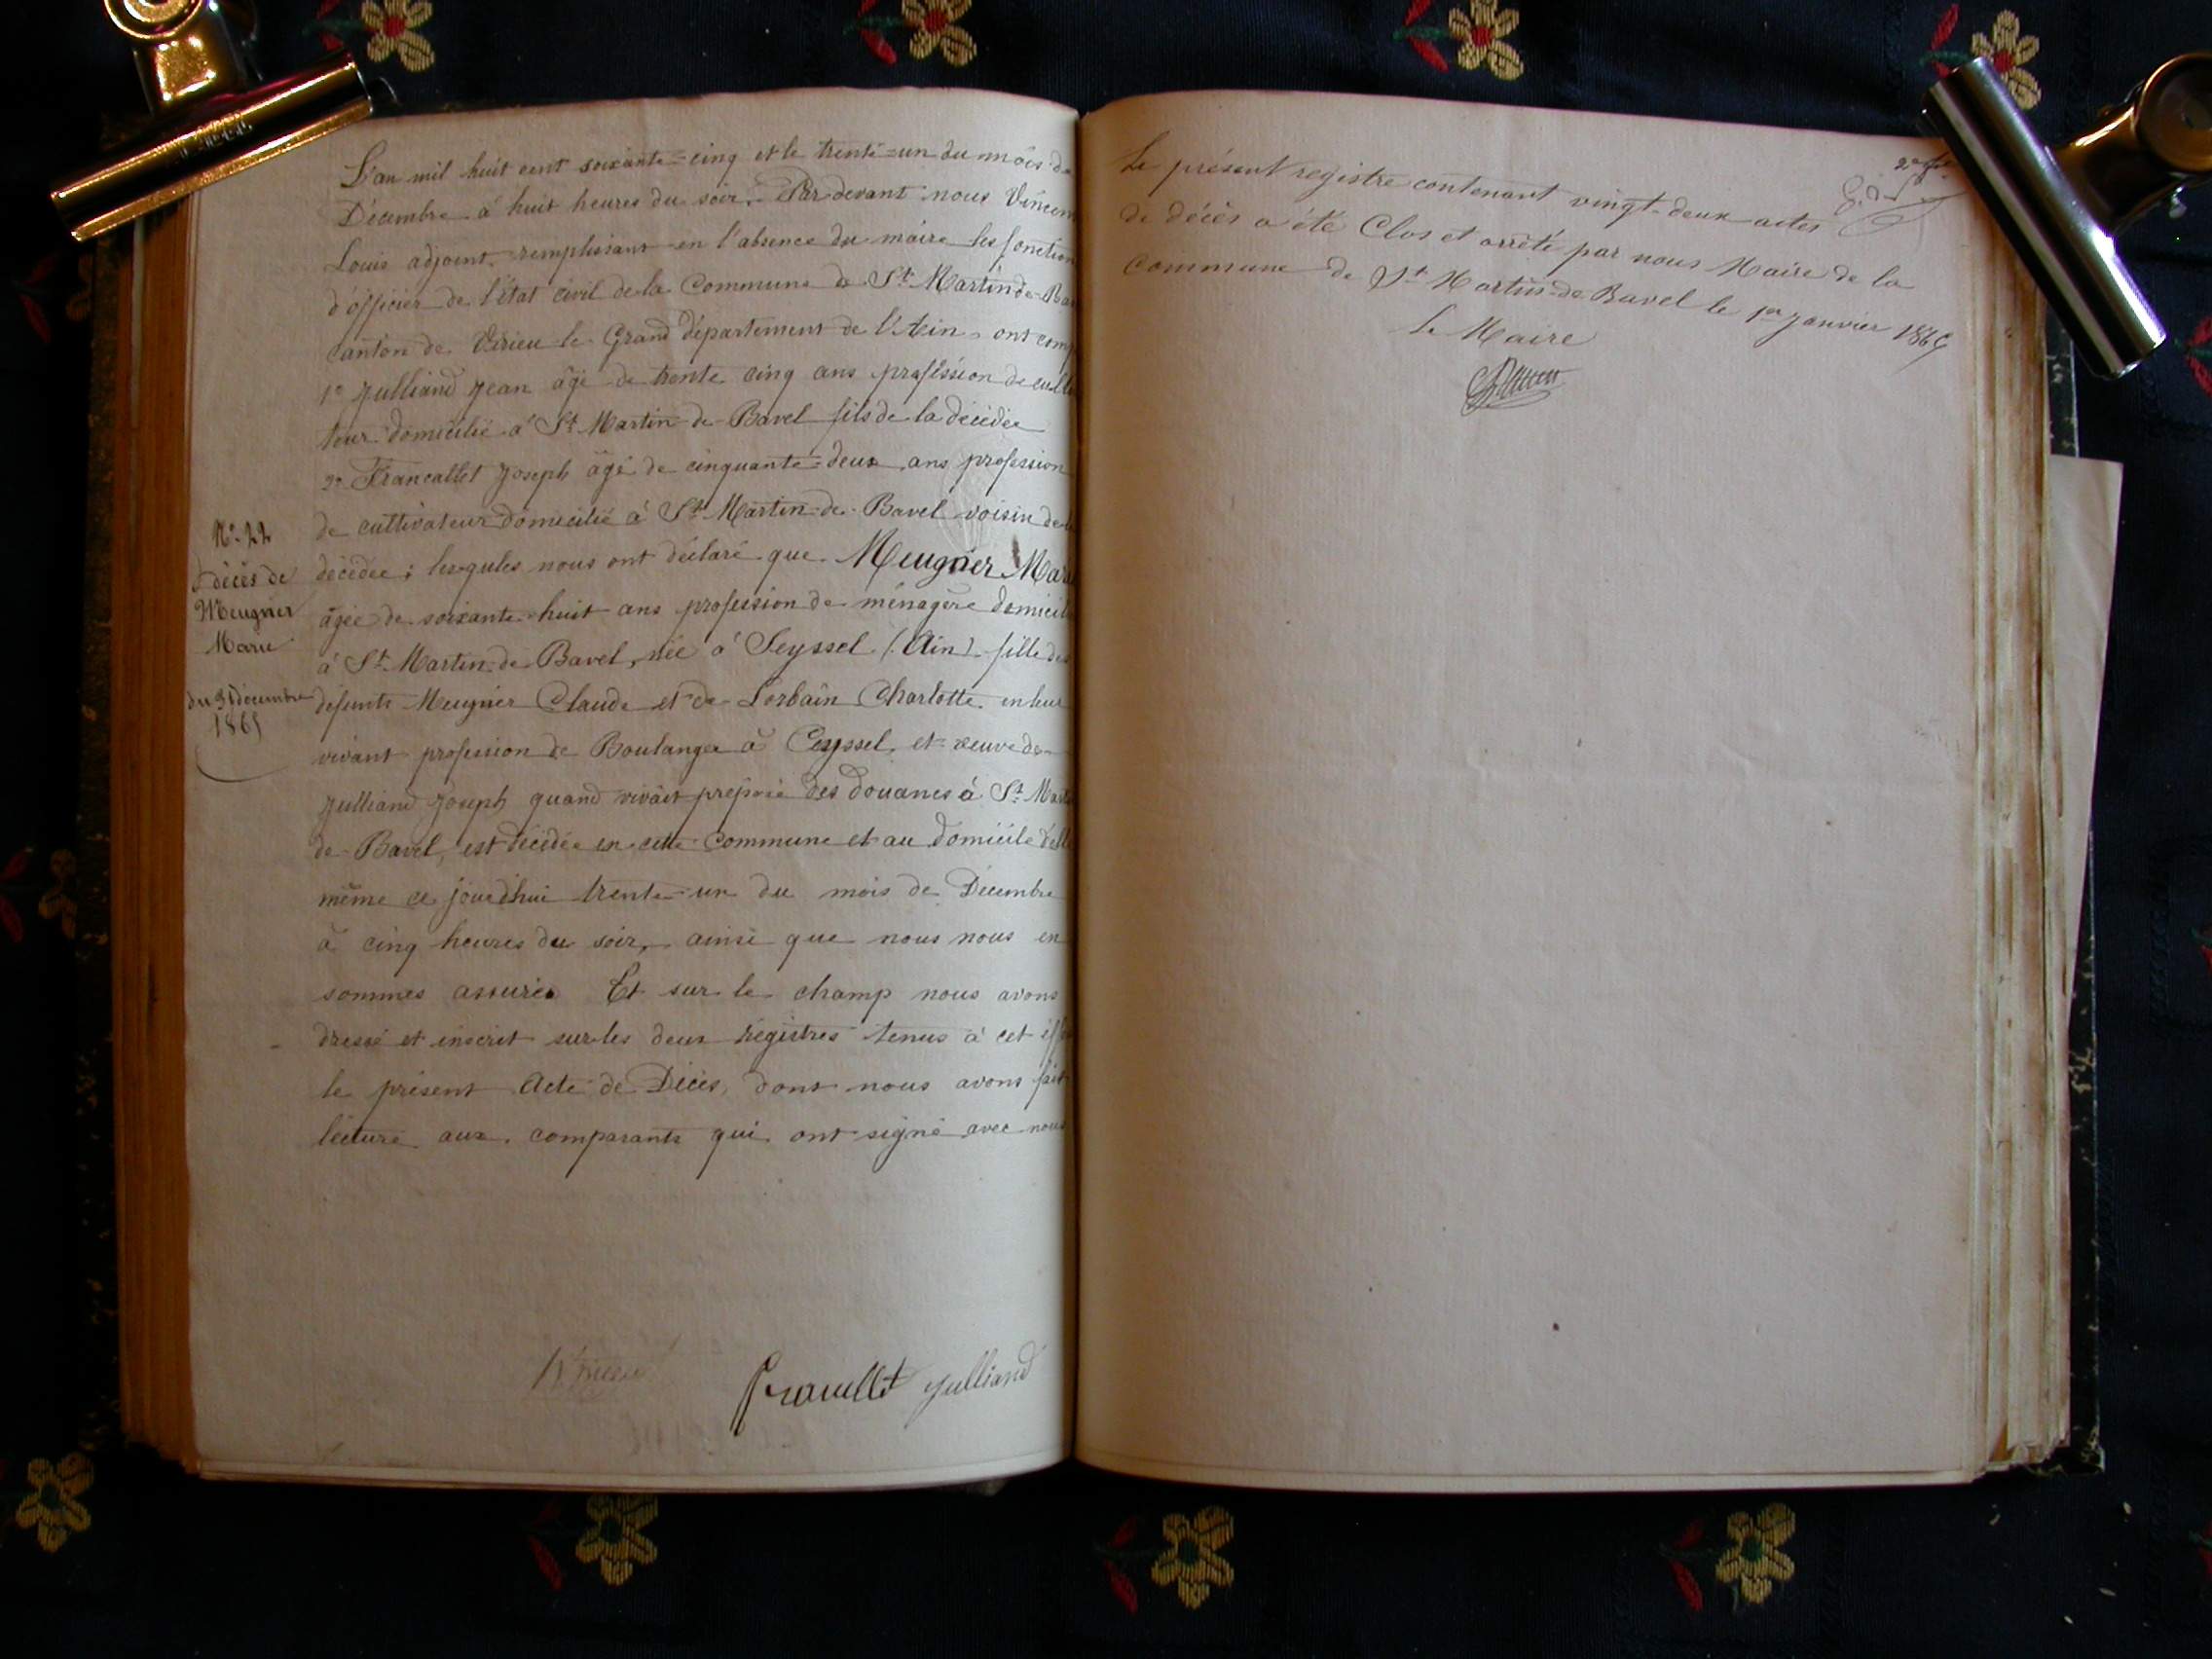 L'an mil huit cent soixante-cinq et le trente-un du mois de
Décembre à huit heures du soir. Par devant nous Vincent
Louis adjoint remplissant en l'absence du maire les fonction
d'officier de l'état civil de la Commune de St Martin-de-Ba
canton de Virieu-le-Grand département de l'Ain, ont comp
1º Julliand Jean âgé de trente cinq ans proféssion de culti
teur domicilié à St Martin-de-Bavel fils de la décédée
2º Francallet Joseph âgé de cinquante-deux ans profession
de cultivateur domicilié à St Martin-de-Bavel voisin de la
décédée; lesqules nous ont déclaré que Meugnier Mari
âgée de soixante-huit ans profession de ménagère domicili
à St Martin-de-Bavel, née à Seyssel (Ain) fille des
défunts Meugnier Claude et de Lorbain Charlotte en leur
vivant profession de Boulanger à Ceyssel, et veuve de
Julliand Joseph quand vivait préposé des douanes à St Marti
de-Bavel, est décédée en cette Commune et au domicile d'elle
même ce jourd'hui trente-un du mois de Décembre
à cinq heures du soir, ainsi que nous nous en
sommes assurés Et sur le champ nous avons
dressé et inscrit sur les deux régistres tenus à cet effe
le présent Acte de Décès, dont nous avons fait
lecture aux comparants qui ont signé avec nous
Nº 22
décès de
Meugnier
Marie
du 31 décembre
1865
Francallet Julliand
Le présent registre contenant vingt-deux actes
de décès a été Clos et arrêté par nous Maire de la
Commune de St Martin-de-Bavel le 1er Janvier 1866
Le Maire